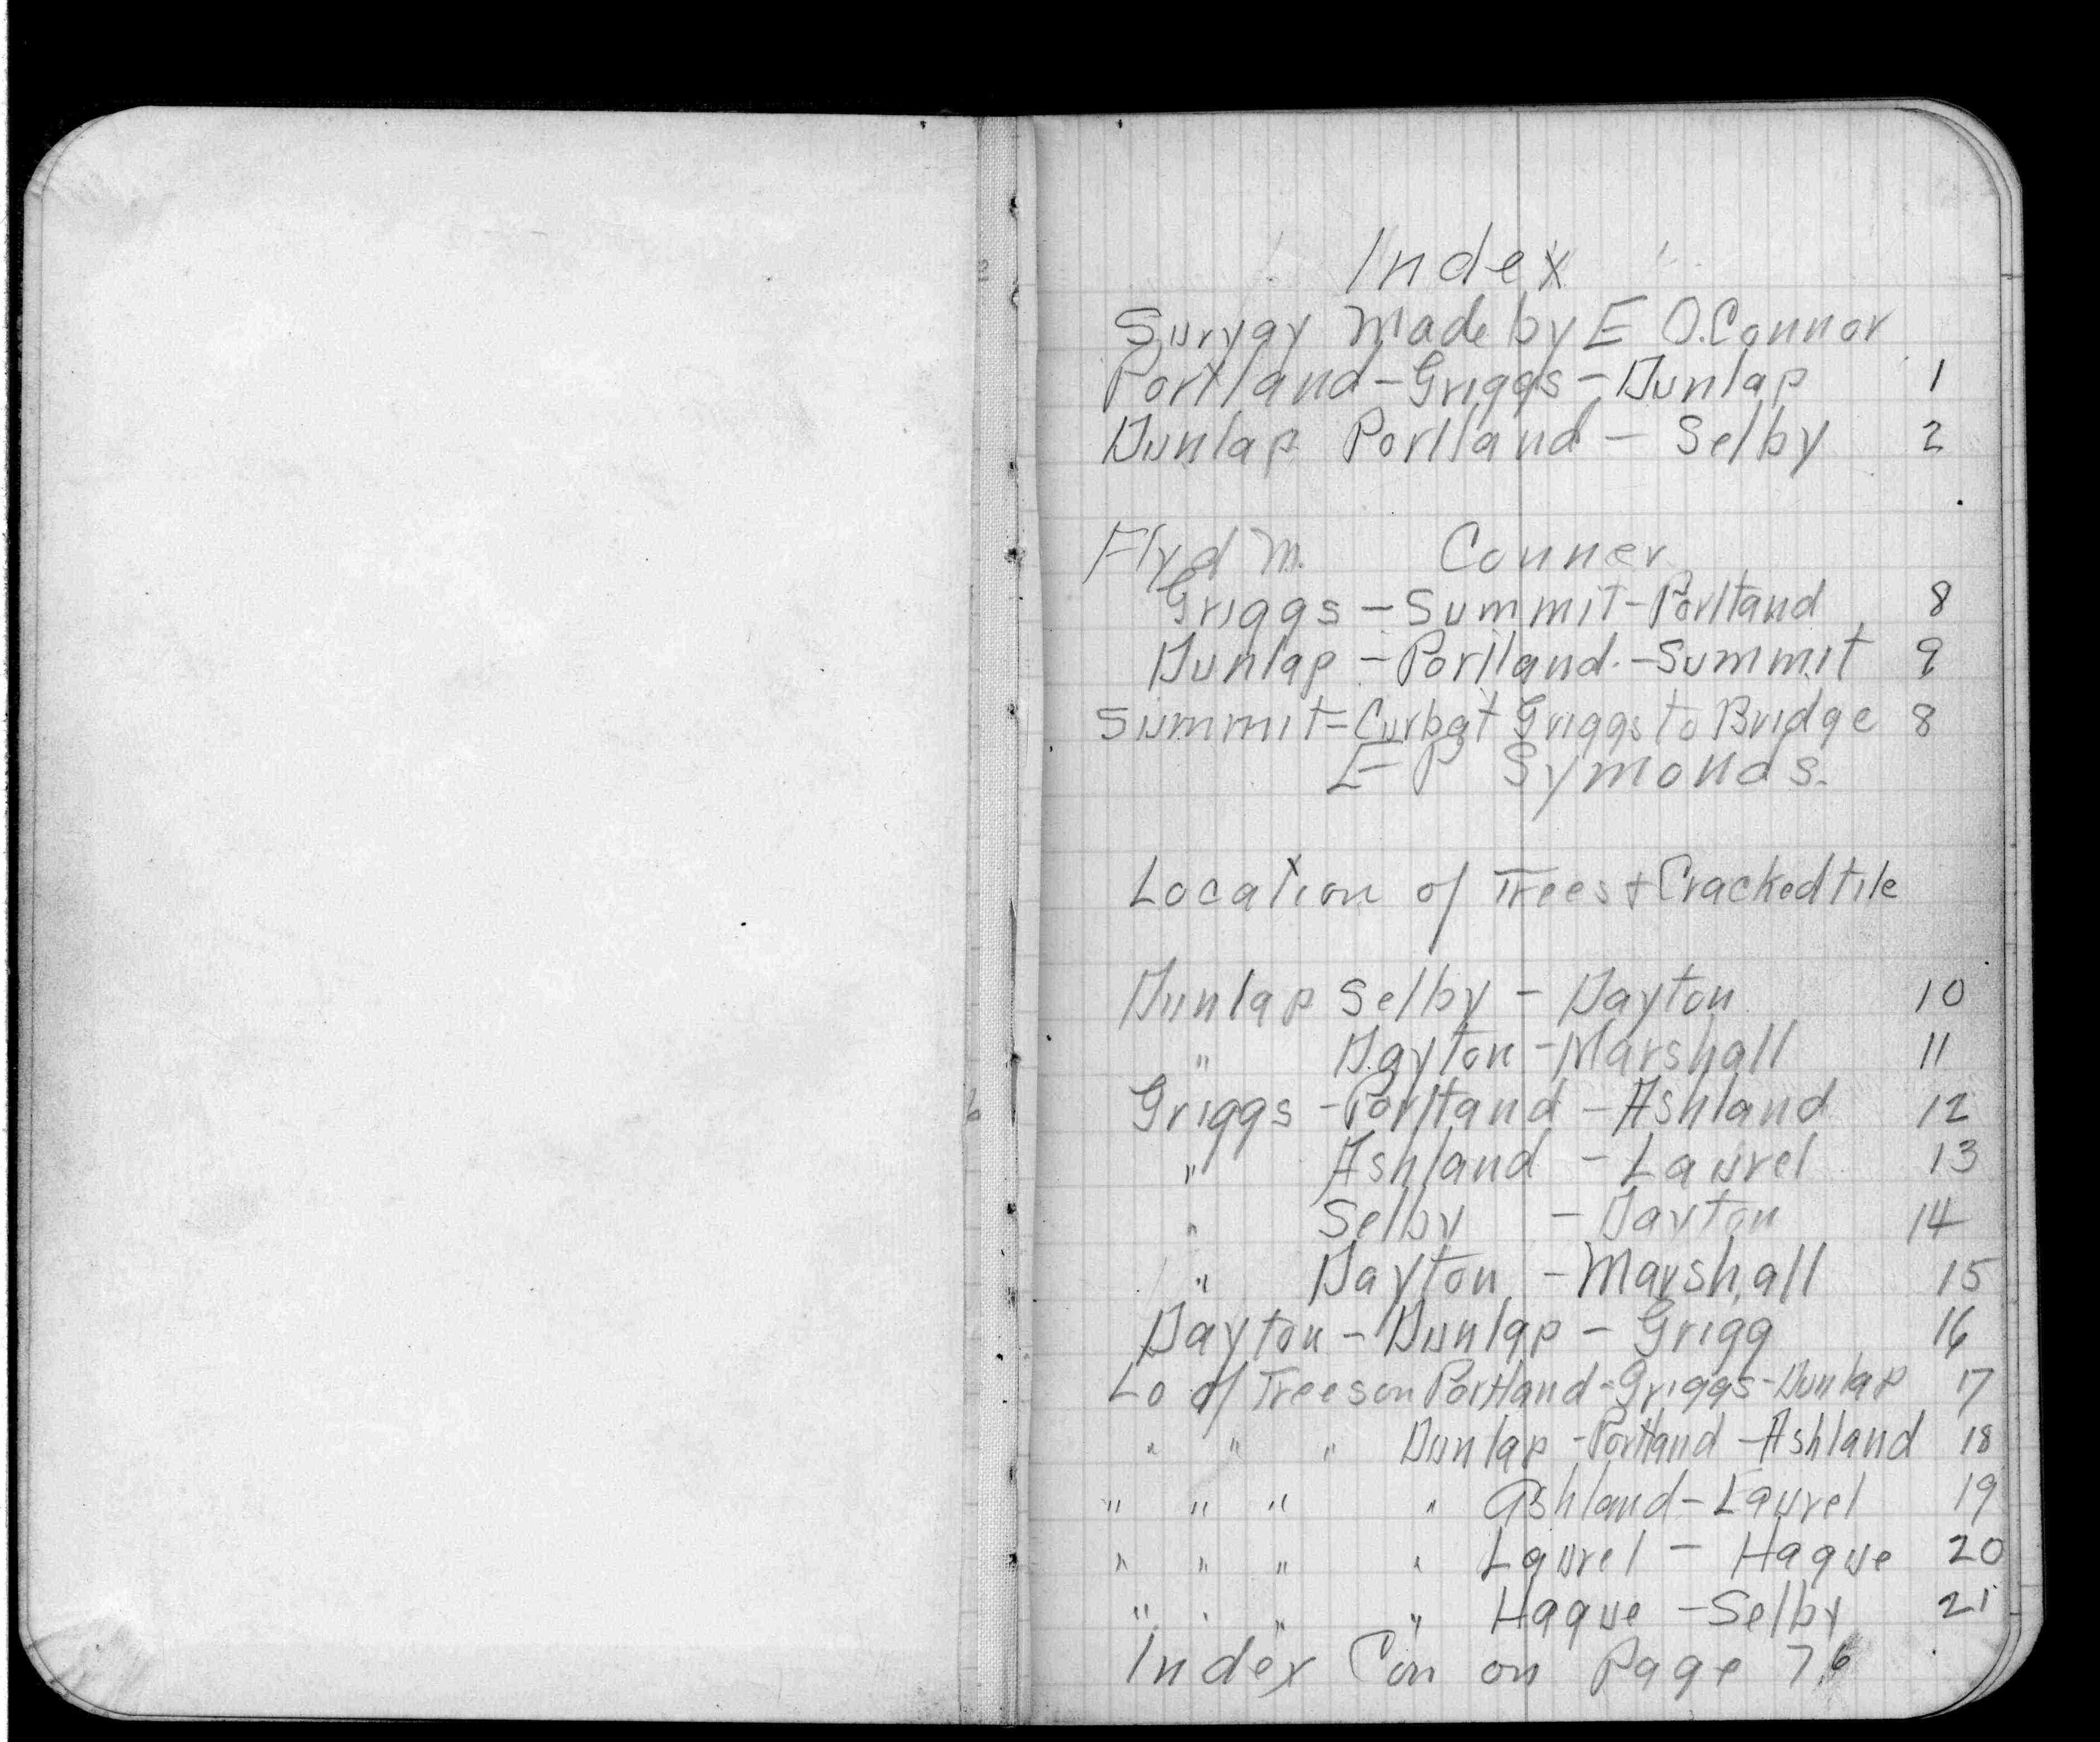 Index
Survay Made by E O.Connor
Portland - Griggs - Dunlap 1
Dunlap Portland - Selby 2
Flyd M. Conner
Griggs - Summit - Portland 8
Dunlap - Portland. - Summit 9
Summit = Curb at Griggs to Bridge 8
E P Symonds.
Location of Trees + Cracked tile
Dunlap Selby - Dayton 10
" Dayton - Marshall 11
Griggs - Portland - Ashland 12
" Ashland - Laurel 13
" Selby - Dayton 14
" Dayton - Marshall 15
Dayton - Dunlap - Grigg 16
Lo of Trees on Portland - Griggs - Dunlap 17
" " " Dunlap - Portland - Ashland 18
" " " " Ashland - Laurel 19
" " " " Laurel - Hague 20
" " " " Hague - Selby 21
Index Con on Page 76